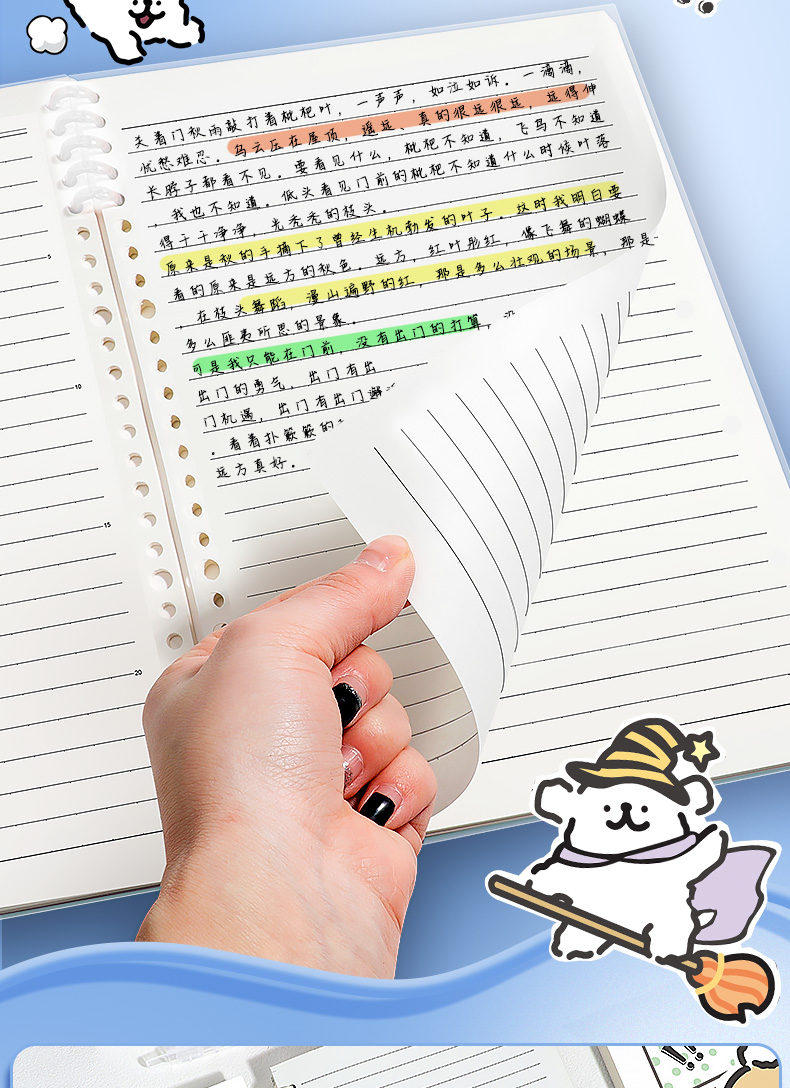 关着门秋雨敲打着枇杷叶，一声声，如泣如诉。一滴滴，
忧愁难忍。乌云压在屋顶，遥远、真的很远很远，远得伸
长脖子都看不见。要看见什么，枇杷不知道，飞鸟不知道
，我也不知道。低头看见门前的枇杷不知道什么时候叶落
得干干净净，光秃秃的枝头。
原来是秋的手摘下了曾经生机勃发的叶子。这时我明白要
看的原来是远方的秋色。远方，红叶彤红，像飞舞的蝴蝶
，在枝头舞蹈，漫山遍野的红，那是多么壮观的场景，那是
多么匪夷所思的景象。
可是我只能在门前，没有出门的打算，没
出门的勇气，出门有出
门机遇，出门有出门邂
。看着扑簌簌的
远方真好。
5
10
15
20